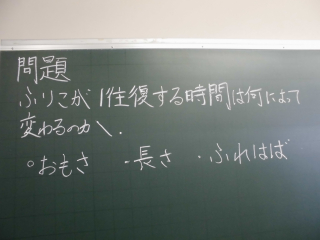 問題
ふりこが1往復する時間は何によって
変わるのか。
○おもさ ・長さ ・ふれはば